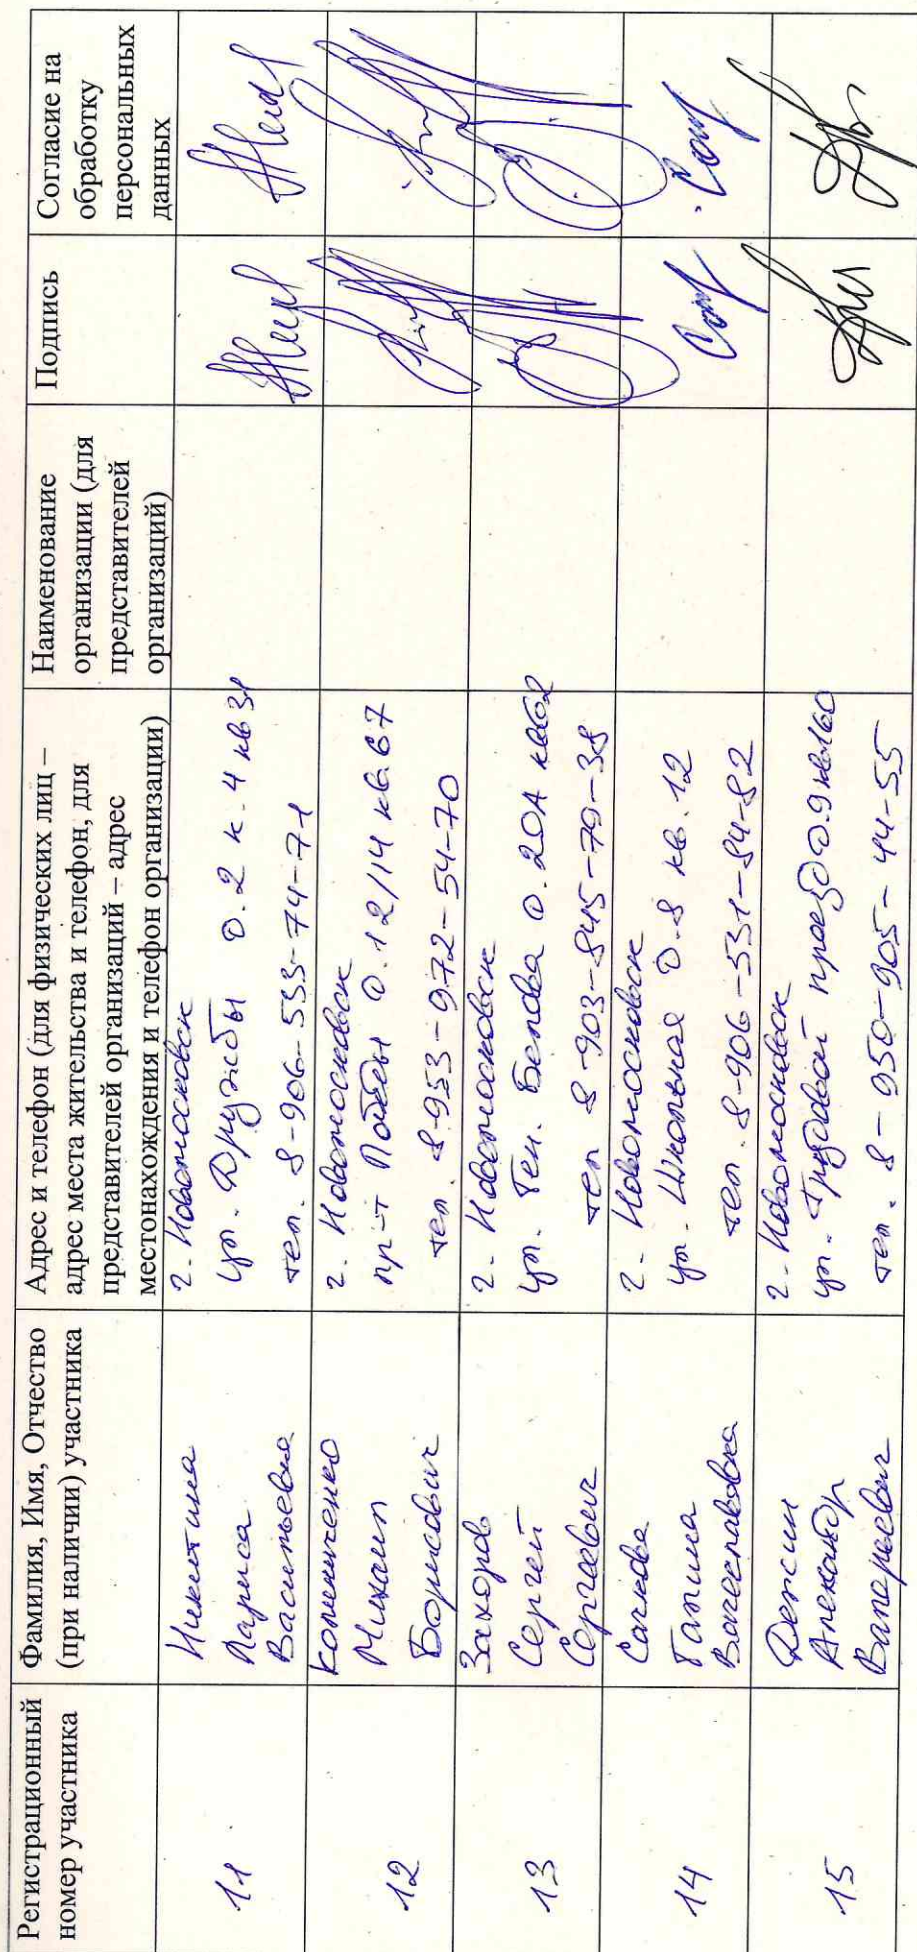 Регистрационный
номер участника
Фамилия, Имя, Отчество
(при наличии) участника
Адрес и телефон (для физических лиц –
адрес места жительства и телефон, для
представителей организаций – адрес
местонахождения и телефон организации)
Наименование
организации (для
представителей
организаций)
Подпись
Согласие на
обработку
персональных
данных
11
Никитина
Лариса
Васильевна
г. Новомосковск
ул. Дружбы д. 2 к. 4 кв 31
тел. 8-906-533-74-71
12
Михаил
Борисович
г. Новомосковск
пр-т Победы д. 12/14 кв. 67
тел. 8-953-972-54-70
13
Захаров
Сергей
Сергеевич
г. Новомосковск
ул. Ген. Белова д. 20А кв 62
тел 8-903-845-79-38
14
Сачкова
Галина
Вячеславовна
г. Новомосковск
ул. Школьная д. 8 кв. 12
тел. 8-906-531-84-82
15
Александр
Валерьевич
г. Новомосковск
ул. Трудовой проезд д. 9 кв 160
тел. 8-950-905-44-55